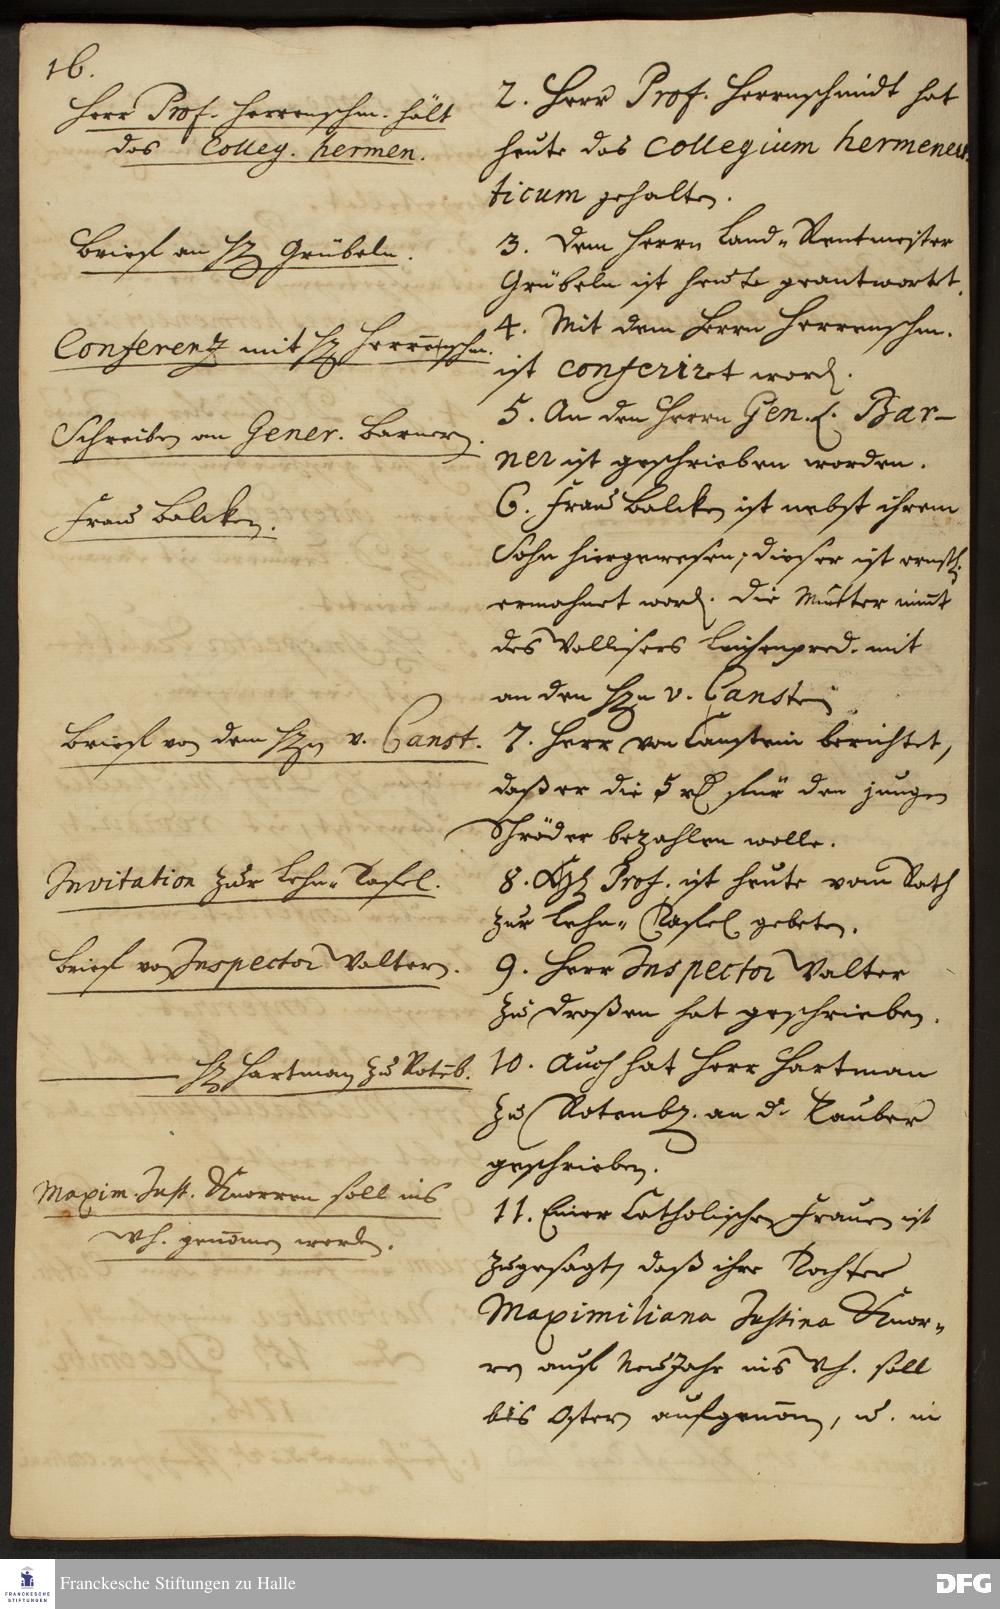 16.
Herr Prof. Herrenschm. hält
das Colleg. hermen.
Brief an H. Grübeln.
Conferenz mit H. Herrenschm.
Schreiben an Gener. Barnern.
Frau Balcken.
Brief von dem Hn v. Canst.
Invitation zur Lehn- Tafel.
Brief von Inspector Walter.
H. Hartman zu Rotenb.
Maxim. Just. Knorren soll ins
Wh. genommen werden.
2. Herr Prof. Herrnschmidt hat
heute das Collegium hermenev-
ticum gehalten.
3. Dem Herrn Land- Rentmeister
Grübeln ist heute geantwortet.
4. Mit dem Herrn Herrenschm.
ist conferiret word.
5. An den Herrn Gen. L. Bar-
ner ist geschrieben worden.
6. Frau Balcken ist nebst ihrem
Sohn hiergewesen; dieser ist ernstl.
ermahnet word. Die Mutter nimt
des Leichenpred. mit
an den Hn v. Canstein
7. Herr von Canstein berichtet,
daß er die 5 für den jungen
Schröder bezahlen wolle.
8. Prof. ist heute vom Rath
zur Lehn- Tafel gebeten.
9. Herr Inspector Walter
zu Droßen hat geschrieben.
10. Auch hat Herr Hartman
zu Rotenb. an d. Tauber
geschrieben.
11. Einer Catholischen Frauen ist
zugesagt, daß ihre Tochter
Maximiliana Justina Knor-
ren auf NeuJahr ins Wh. soll
bis Ostern aufgenom, u. in
Franckesche Stiftungen zu Halle
FRANCKESCHE
STIFTUNGEN
DFG